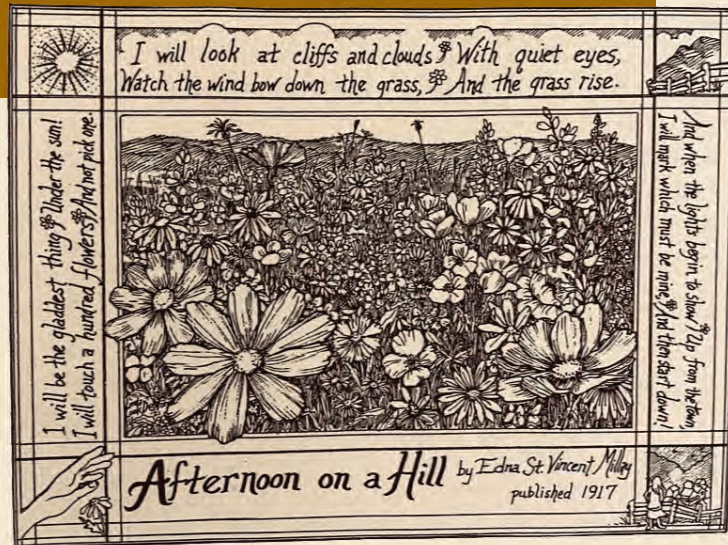 I will be the gladdest thing Under the sun!
I will touch a hundred flowers And not pick one.
I will look at cliffs and clouds With quiet eyes,
Watch the wind bow down the grass, And the grass rise.
And when the lights begin to show Up from the town,
I will mark which must be mine, And then start down!
Afternoon on a Hill by Edna St. Vincent Millay
published 1917